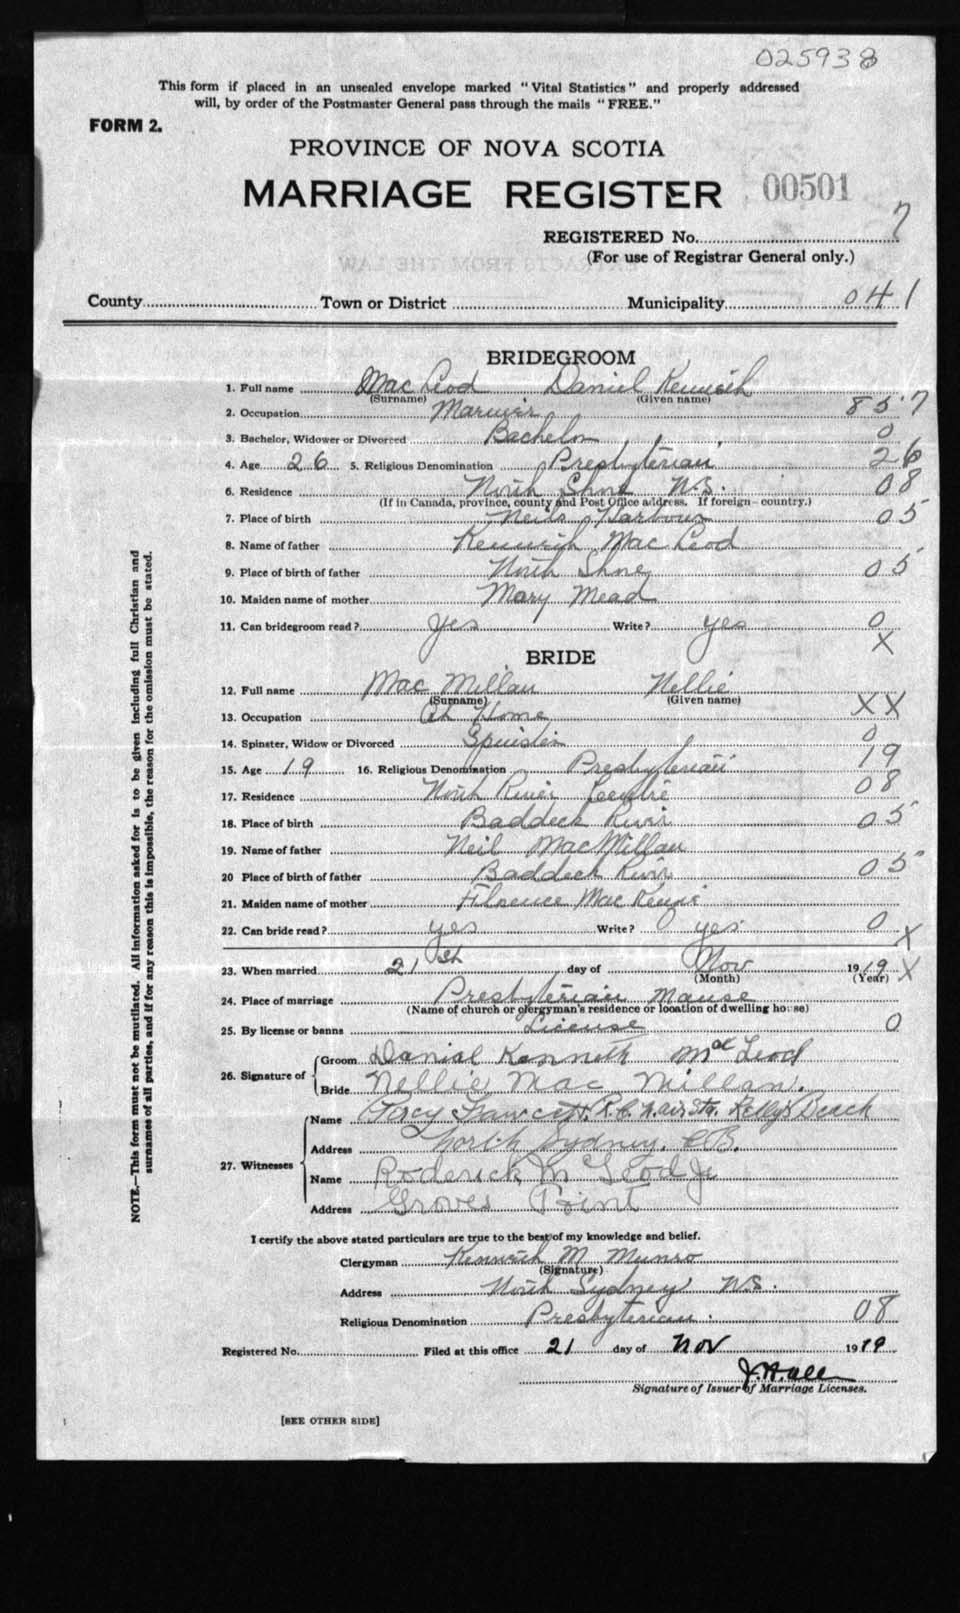 025938
This form if placed in an unsealed envelope marked "Vital Statistics" and properly addressed
will, by order of the Postmaster General pass through the mails "FREE."
FORM 2.
PROVINCE OF NOVA SCOTIA
MARRIAGE REGISTER 00501
REGISTERED No. 7
(For use of Registrar General only.)
County Town or District Municipality 041
BRIDEGROOM
1. Full name Mac Leod Daniel Kenneth
(Surname) (Given name)
2. Occupation Mariner 857
3. Bachelor, Widower or Divorced Bachelor 0
4. Age 26 5. Religious Denomination Presbyterian 26
6. Residence North Shore N.S. 08
(If in Canada, province, county and Post Office address. If foreign—country.)
7. Place of birth Neils Harbour 05
8. Name of father Kenneth Mac Leod
9. Place of birth of father North Shore 05
10. Maiden name of mother Mary Mead
11. Can bridegroom read? yes Write? yes 0
X
BRIDE
12. Full name Mac Millan Nellie
(Surname) (Given name)
13. Occupation At Home XX
14. Spinster, Widow or Divorced Spinster 0
15. Age 19 16. Religious Denomination Presbyterian 19
17. Residence North River 08
18. Place of birth Baddeck River 05
19. Name of father Neil MacMillan
20 Place of birth of father Baddeck River 05
21. Maiden name of mother Florence MacKenzie
22. Can bride read? yes Write? yes 0 X
23. When married 21st day of Nov 1919 X
(Month) (Year)
24. Place of marriage Presbyterian Manse
(Name of church or clergyman's residence or location of dwelling house)
25. By license or banns License 0
26. Signature of Groom Daniel Kenneth McLeod
Bride Nellie Mac Millan.
27. Witnesses Name Percy Fawcett, R.C. N. air Stn. Kelly's Beach
Address North Sydney. C.B.
Name Roderick McLeod Jr
Address Groves Point
I certify the above stated particulars are true to the best of my knowledge and belief.
Clergyman Kenneth M Munro
(Signature)
Address North Sydney N.S.
Religious Denomination Presbyterian. 08
Registered No. Filed at this office 21 day of Nov 1919
Signature of Issuer of Marriage Licenses.
[SEE OTHER SIDE]
NOTE.—This form must not be mutilated. All information asked for is to be given including full Christian and
surnames of all parties, and if for any reason this is impossible, the reason for the omission must be stated.